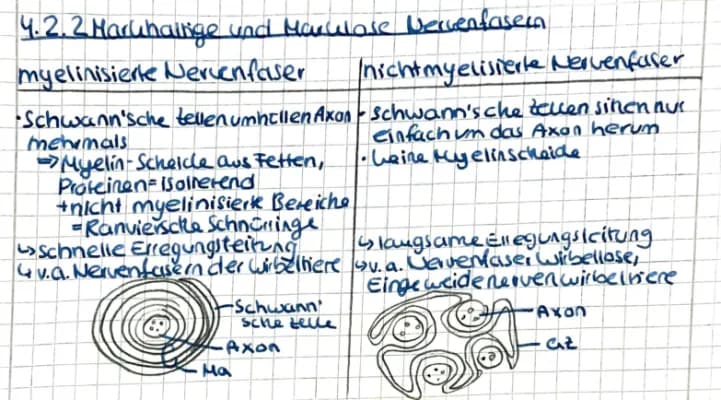 4.2.2 Markhaltige und Marklose Nervenfasern
myelinisierte Nervenfaser
· Schwann'sche Zellen umhüllen Axon
mehrmals
⇒ Myelin-Scheide aus Fetten,
Proteinen = Isolierend
+ nicht myelinisierte Bereiche
= Ranviersche Schnürringe
↳ schnelle Erregungsleitung
↳ v.a. Nervenfasern der Wirbeltiere
Schwann'
sche Zelle
Axon
Ma
nichtmyelisierte Nervenfaser
· Schwann'sche Zellen sitzen nur
einfach um das Axon herum
· keine Myelinscheide
↳ langsame Erregungsleitung
↳ v.a. Nervenfaser Wirbellose,
Eingeweidenerven Wirbeltiere
Axon